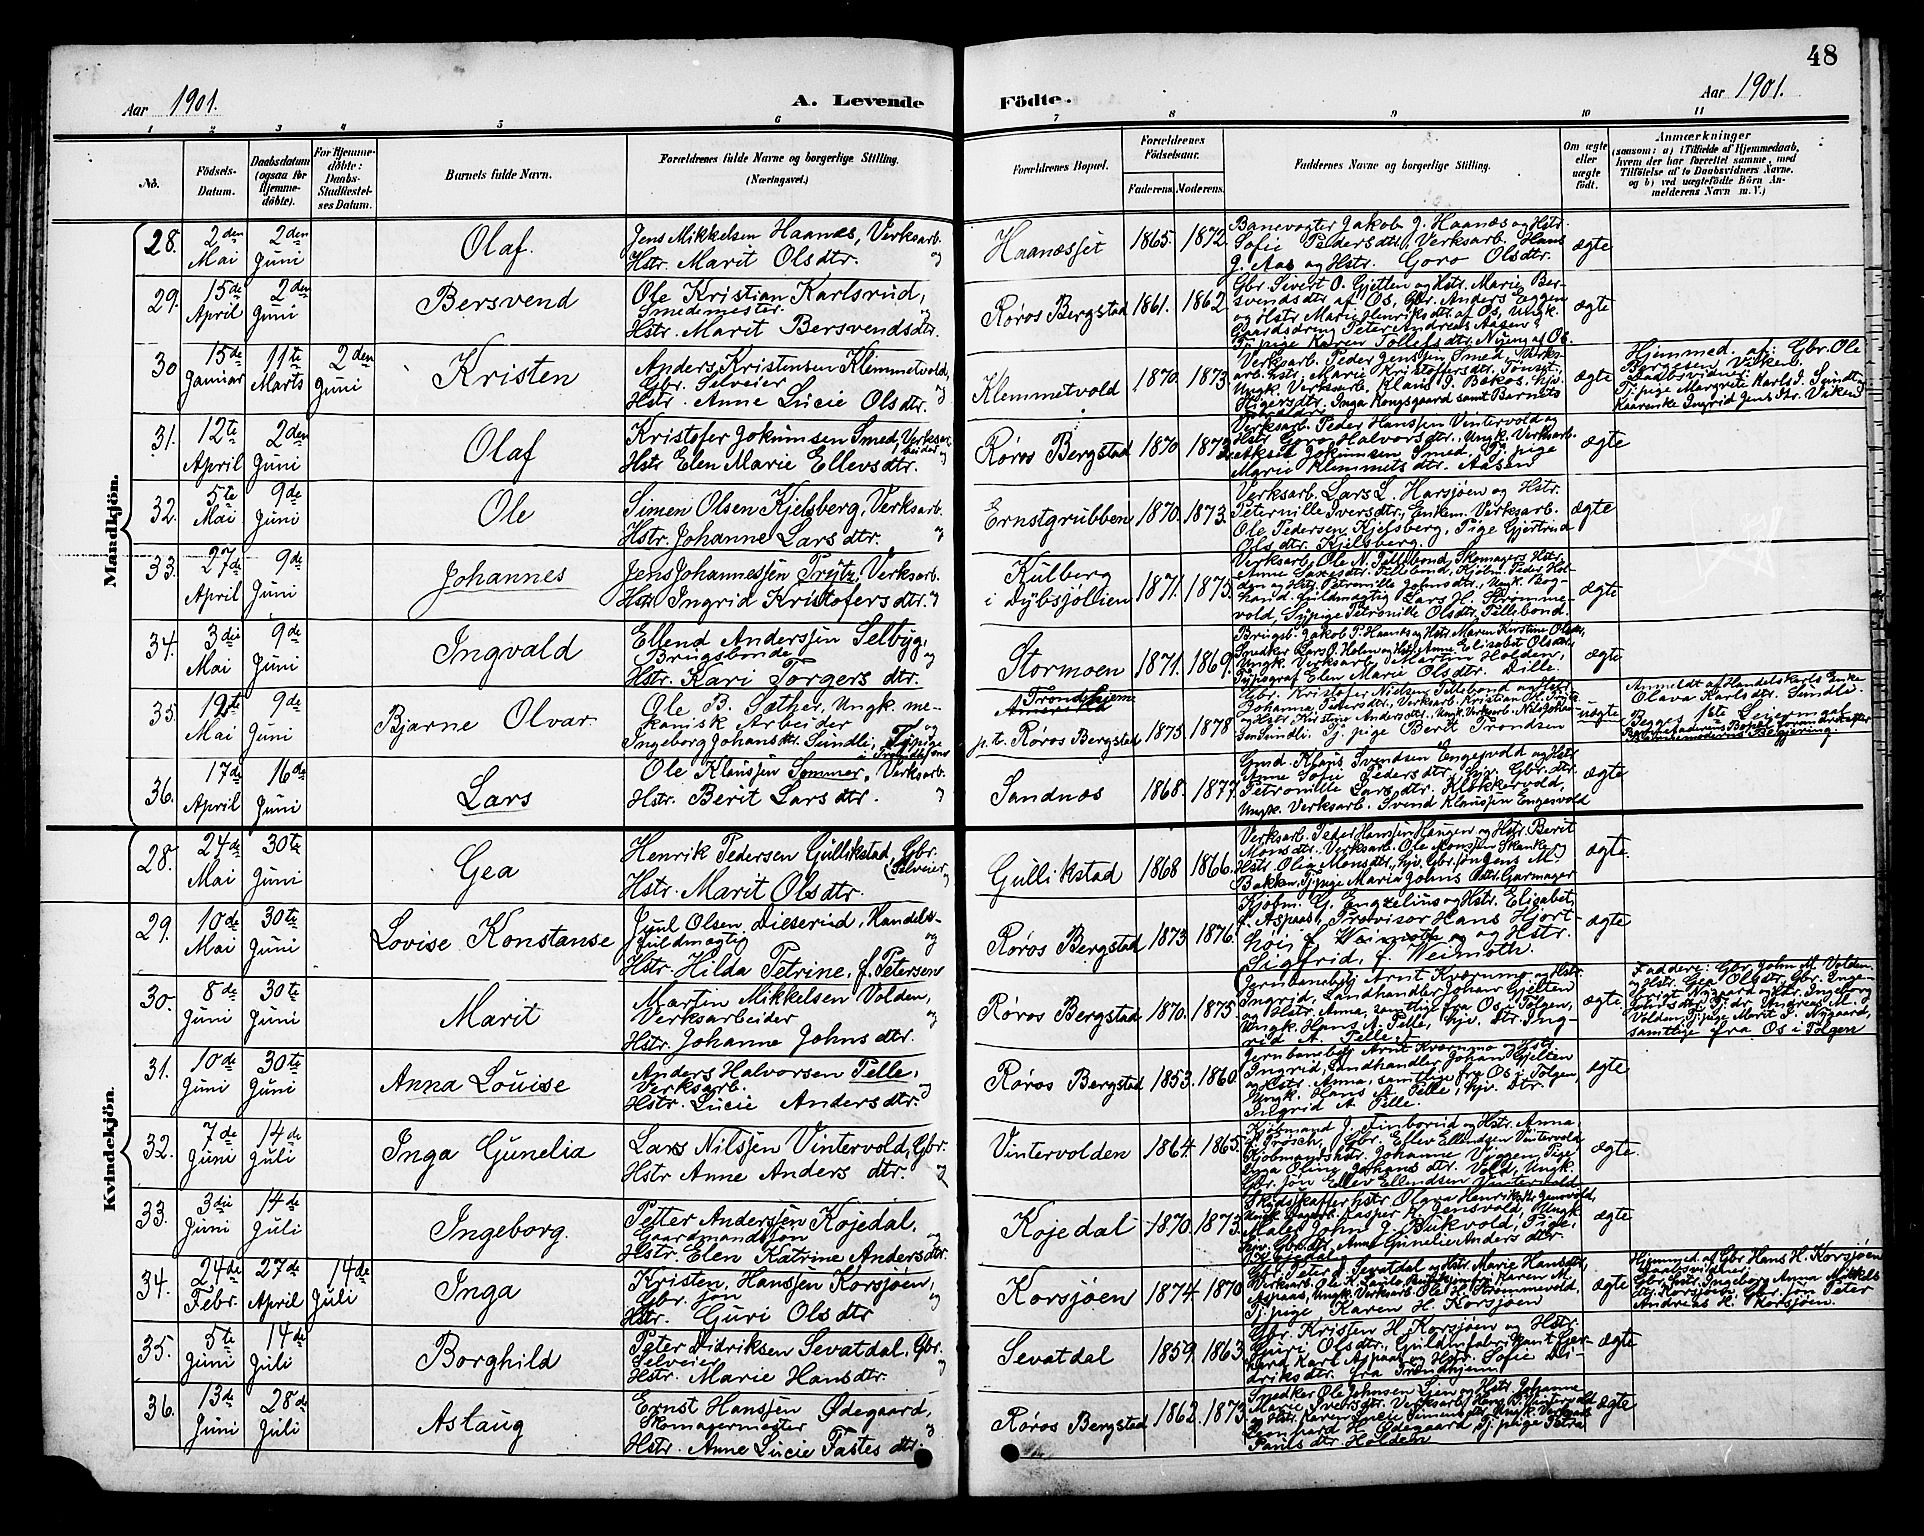 48
Aar 1901.
A. Levende
Födte.
Aar 1901.
1 2 3 4 5 6 7 8 9 10 11
No.
Födsels-Datum.
Daabsdatum (ogsaa for Hjemme-döbte).
For Hjemme-döbte: Daabs-Stadfæstel-ses Datum.
Barnets fulde Navn.
Forældrenes fulde Navne og borgerlige Stilling. (Næringsvei.)
Forældrenes Bopæl.
Forældrenes Födselsaar.
Faderens. Moderens.
Faddernes Navne og borgerlige Stilling.
Om ægte eller uægte födt.
Anmærkninger
(saasom: a) i Tilfælde af Hjemmedaab, hvem der har forrettet samme, med Tilföielse af to Daabsvidners Navne. og b) ved uægtefödte Börn An-melderens Navn m. V.)
Mandkjön.
28. 2den Mai 2den Juni Olaf.
Jens Mikkelsen Haanes, Verksarb. og
Hstr. Marit Olsdtr.
Haanæsset 1865. 1872.
Banevogter Jakob J. Haanæs og Hstr.
Sofie Pedersdtr., Verksarb. Hans
J. Aas og Hstr. Goro Olsdtr.
ægte
29. 15de April 2den Juni Bersvend
Ole Kristian Karlsrud,
Smedemester og
Hstr. Marit Bersvendsdtr.
Røros Bergstad 1861. 1862.
Gbr. Sivert O. Gjelten og Hstr. Marie Ber-
svendsdtr. af Os, Gbr. Anders Eggen
og Hstr. Marie Henriksdtr. af Os, Ungk.
Gaardsdreng Peter Andreas Aasen,
Tj. pige Karen Tollefsdtr. Nyeng af Os.
ægte
30 15de Januar 11te Marts 2den Juni Kristen
Anders Kristensen Klemmetvold,
Gbr. Selveier og
Hstr. Anne Lucie Olsdtr.
Klemmetvold 1870. 1873.
Verksarb. Peder Jenssen Smed, Verks-
arb. Hstr. Marie Kristoffersdtr. Tønset,
Ungk. Verksarb. Klaus J. Bakos, hjv.
Inga Kongsgaard samt Barnets
Forældre
ægte
Hjemmed. af: Gbr. Ole
Borgesen Viken.
Daabsvidner:
Tj. pige Margrete Karls d. Sundt og
Ingrid Jens dtr. Viken
31. 12te April 2den Juni Olaf
Kristofer Jokumsen Smed, Verksar-
beider og
Hstr. Elen Marie Ellevsdtr.
Røros Bergstad 1870 1873
Verksarb. Peder Hanssen Vintervold og
Hstr. Goro Halvorsdtr., Ungk. Verksarb.
Aksel Jokumsen Smed, Tj. pige
Marie Klemmetsdtr. Aasen
ægte
32. 5te Mai 9de Juni Ole
Simen Olsen Kjelsberg, Verksarb.
Hstr. Johanne Larsdtr. og
Ernstgrubben 1870. 1873.
Verksarb. Lars L. Harsjøen og Hstr.
Peternille Iversdtr., Enkem. Verksarb.
Ole Pedersen Kjelsberg, Pige Gjertrud
Olsdtr. Kjelsberg.
ægte
33. 27de April 9de Juni Johannes
Jens Johannessen Trytz, Verksarb.
Hstr. Ingrid Kristofersdtr. og
Kulberg
i Dybsjølien 1871. 1875.
Verksarb. Ole N. Tellebond, Skomagers Hstr.
Anne Larsdtr. Tellebond, Kjøbm. Peder Hol-
den og Hstr. Petronille Johnsdtr., Ungk. Bog-
hand. fuldmægtig Lars H. Strømme-
vold, Sypige Petronille Olsdtr. Tellebond.
ægte
34. 3die Mai 9de Juni Ingvald
Ellend Andersen Selbyg,
Brugsbonde og
Hstr. Kari Torgersdtr.
Stormoen 1871. 1869.
Brugsb. Jakob P. Haanes og Hstr. Maren Kirstine Olsdtr.,
Snedker Lars O. Holen og Hstr. Anne Elisabet Olsdtr.,
Ungk. Verksarb. Martin Holden,
Typograf Elen Marie Olsdtr. Dille.
ægte
35. 19te Mai 9de Juni Bjarne Olvar.
Ole B. Sæther, Ungk. me-
kanisk Arbeider og
Ingeborg Johansdtr. Sundli, Tj. pige
Trondhjem
p. t. Røros Bergstad 1875 1878
Gbr. Kristofer Nielsen Tellebond og Hstr.
Johanna Petersdtr., Verksarb. Kristian H. Trytz
og Hstr. Kirstine Andersdtr., Ungk. Verksarb. Nils Johan-
sen Sundli, Tj. pige Berit Trondsen
uægte
Anmeldt af Handelskarls Enke
Olava Karlsdtr. Sundli.
Begges 1ste Leiermaal
Barnefaderens Bopæl forandret efter
Barnemoderens Begjæring.
36. 17de April 16de Juni Lars
Ole Klaussen Sommer, Verksarb.
Hstr. Berit Larsdtr. og
Sandnæs 1868. 1877.
Gmd. Klaus Svendsen Engesvold og Hstr.
Anne Sofie Pedersdtr., hjv. Gbr. dtr.
Petronille Larsdtr. Klokkervold,
Ungk. Verksarb. Svend Klaussen Engesvold
ægte
Kvindekjön.
28. 24de Mai 30te Juni Gea
Henrik Pedersen Gullikstad, Gbr.
(Selveier) og
Hstr. Marit Olsdtr.
Gullikstad 1868 1866.
Verksarb. Peder Hanssen Haugen og Hstr. Berit
Monsdtr., Verksarb. Ole Monsen Skanke og
Hstr. Olia Monsdtr., hjv. Gbr. søn Jens M.
Bakken, Tj. pige Maria Johnsdtr. Garmager
ægte.
29. 10de Mai 30te Juni Lovise Konstanse
Juul Olsen Dieserud, Handels-
fuldmægtig og
Hstr. Hilda Petrine, f. Petersen
Røros Bergstad 1873 1876.
Kjøbm. G. Engzelius og Hstr. Elisabet,
f. Aspaas, Provisor Hans Hjort-
høi, f. Weimoth og og Hstr.
Sigfrid, f. Weimoth.
ægte
30. 8de Juni 30te Juni Marit
Martin Mikkelsen Volden,
Verksarbeider og
Hstr. Johanne Johnsdtr.
Røros Bergstad 1870. 1875.
Jernbanebetj. Arnt Kværnmo og Hstr.
Ingrid, Landhandler Johan Gjelten
og Hstr. Anna, samtlig fra Os i Tolgen,
Ungk. Hans A. Pelle, hjv. dtr. Ing-
rid A. Pelle.
ægte.
Faddere: Gbr. John M. Volden
og Hstr. Gea Olsdtr., Gbr. Inge-
brigt Nygaard og Hstr. Ingeborg
Tj. dr. Andreas M.
Volden, Tj. pige Marit I. Nygaard,
samtlige fra Os i Tolgen
31. 10de Juni 30te Juni Anna Louise
Anders Halvorsen Pelle,
Verksarb. og
Hstr. Lucie Andersdtr.
Røros Bergstad 1853. 1860.
Jernbanebetj. Arnt Kværnmo og Hstr.
Ingrid, Landhandler Johan Gjelten
og Hstr. Anna, samtlige fra Os i Tolgen,
Ungk. Hans A. Pelle, hjv. dtr.
Ingrid A. Pelle.
ægte
32. 7de Juni 14de Juli Inga Gunelia
Lars Nilssen Vintervold, Gbr.
Hstr. Anne Andersdtr. og
Vintervolden 1864. 1865.
Kjøbmand J. Finborud og Hstr. Anna
f. Prosch, Gbr. Ellev Ellendsen Vintervold
Kjøbmandshstr. Johanne Viggen, Pige
Inga Oline Johansdtr. Vold, Ungk.
Gbr. søn Ellev Ellendsen Vintervold
ægte.
33. 3die Juni 14de Juli Ingeborg.
Petter Anderssen Kojedal,
Gaardmandssøn og
Hstr. Elen Katrine Andersdtr.
Kojedal 1870. 1873.
Skydsskafferhstr. Olava Henriksdtr. Jensvold,
Kasper H. Jensvold, Ungk.
Maler Johne J. Bukvold, Pige,
hjv. Gbr. dtr. Anne Gunelie Andersdtr.
Kojedal.
ægte
34. 24de Febr. 27de April 14de Juli Inga
Kristen Hanssen Korsjøen,
Gbr. søn og
Hstr. Guri Olsdtr
Korsjøen 1874 1870
Gbr. Peter D. Sevatdal og Hstr. Marie Hansdtr.,
Karen M.
Aspaas, Ungk. Verksarb. Ole H. Strømmevold,
Tj. pige Karen H. Korsjøen
ægte
Hjemmed. af Gbr. Hans H. Korsjøen
Daabsvidner:
Gbr. hstr. Ingeborg Anna Mikkels-
dtr. Korsjøen. Gbr. søn Peter
Andreas H. Korsjøen.
35. 5te Juni 14de Juli Borghild
Peter Didriksen Sevatdal, Gbr.
Selveier og
Hstr. Marie Hansdtr.
Sevatdal 1859. 1863.
Gbr. Kristen H. Korsjøen og Hstr.
Guri Olsdtr., Guldsm. fabrikant Ger-
hard Karl Aspaas og Hstr. Sofie Di-
driksdtr. fra Trondhjem
ægte
36. 13de Juni 28de Juli Aslaug
Ernst Hanssen Ødegaard,
Skomagermester og
Hstr. Anne Lucie Fastesdtr.
Røros Bergstad 1862. 1873
Snedker Ole Johnsen Lien og Hstr. Johanne
Marie Iversdtr., Verksarb. Hans P. Vintervold
og Hstr. Karen Lucie Simensdtr., Ungk. Verksarb.
Leonhard H. Ødegaard, Tj. pige Petra
Paulsdtr. Holden
ægte